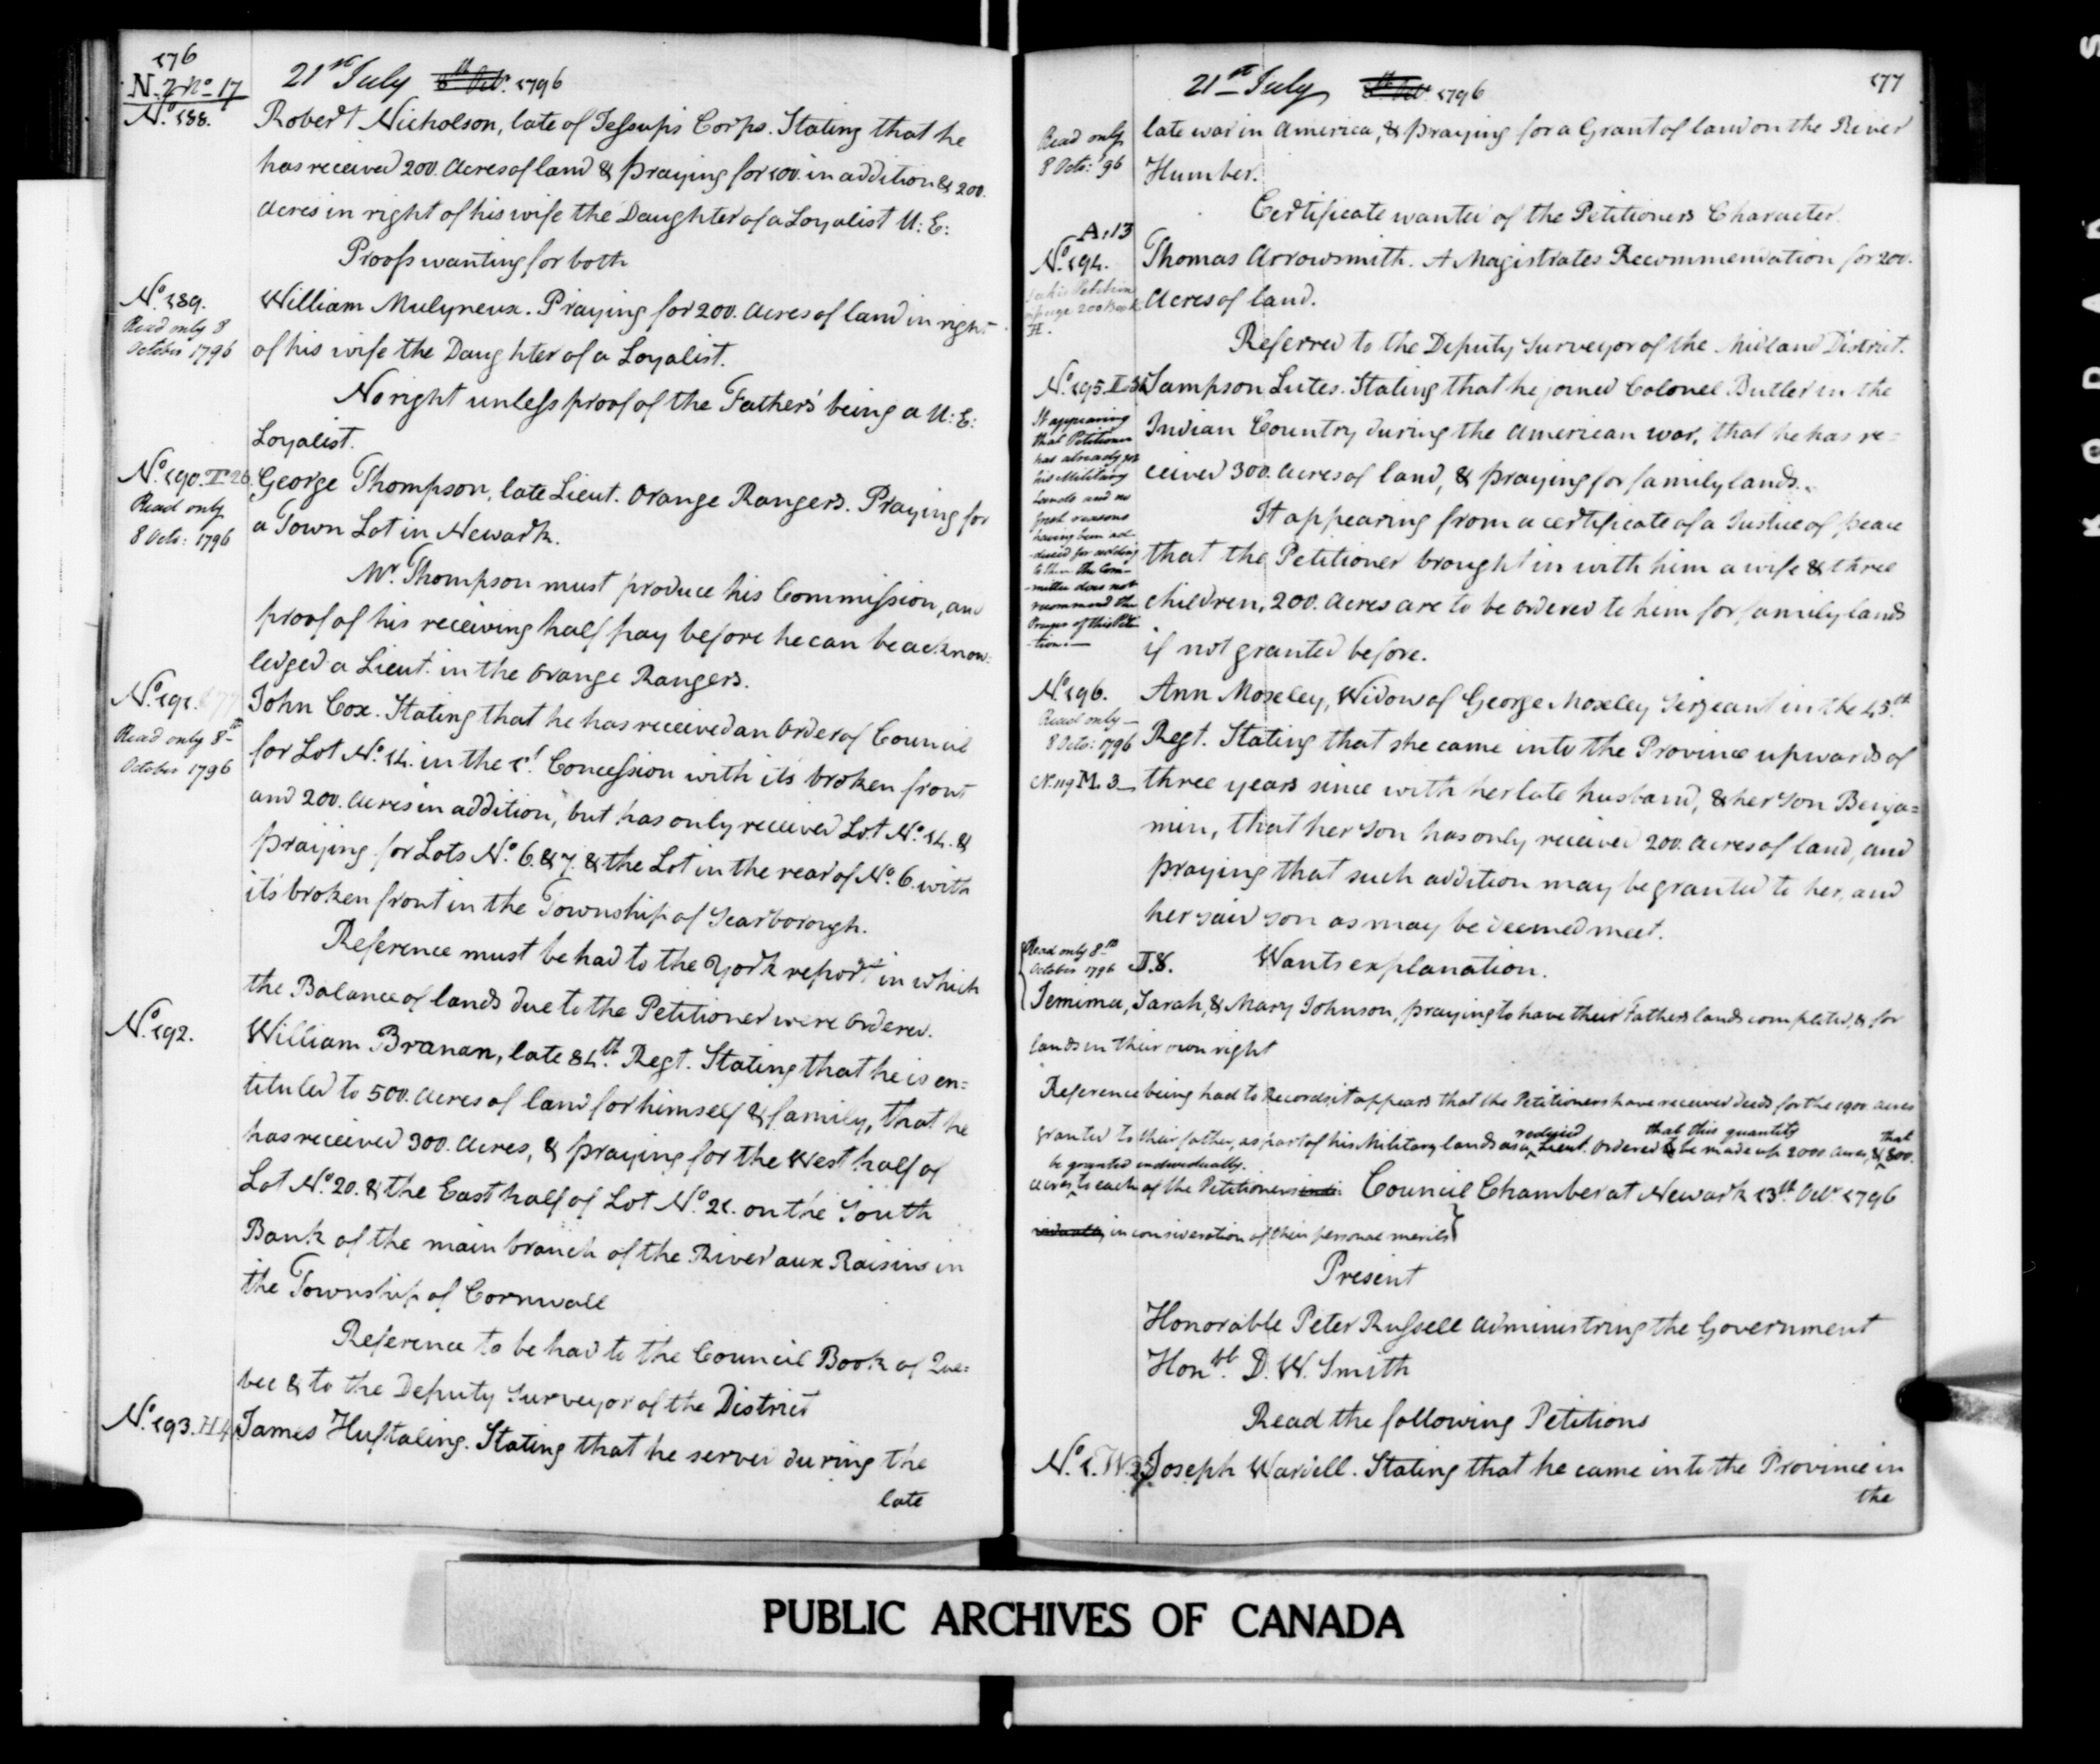 176
N. 2 No 17
21st July 8th Octr. 1796
No. 188.
Robert Nicholson, late of Jessup's Corps. Stating that he
has received 200. Acres of land & praying for 100. in addition & 200.
Acres in right of his wife the Daughter of a Loyalist U: E:
Proofs wanting for both
No. 189.
Read only 8
October 1796
William Mulyneux. Praying for 200. Acres of land in right
of his wife the Daughter of a Loyalist.
No right unless proof of the Father's being a U: E:
Loyalist.
No. 190. T 26
Read only
8 Octo: 1796
George Thompson, late Lieut. Orange Rangers. Praying for
a Town Lot in Newark.
Mr. Thompson must produce his Commission, and
proof of his receiving half pay before he can be acknow=
ledged a Lieut. in the Orange Rangers.
No. 191.
Read only 8th
October 1796
John Cox. Stating that he has received an Order of Council
for Lot No. 14. in the 1st. Concession with its broken front
and 200. Acres in addition, but has only received Lot No. 14. &
praying for Lots No. 6. & 7. & the Lot in the rear of No. 6. with
its broken front in the Township of Scarborough.
Reference must be had to the York report in which
the Balance of lands due to the Petitioner were ordered.
No. 192.
William Branan, late 84th. Regt. Stating that he is en=
tituled to 500. Acres of land for himself & family, that he
has received 300. Acres, & praying for the West half of
Lot No. 20. & the East half of Lot No. 21. on the South
Bank of the main branch of the River aux Raisins in
the Township of Cornwall
Reference to be had to the Council Book of Que=
bec & to the Deputy Surveyor of the District
No. 193. H 4
James Huftaling. Stating that he served during the
late
21st July 8th Octr. 1796
177
Read only
8 Octo: 96
late war in America, & praying for a Grant of land on the River
Humber.
Certificate wanted of the Petitioners Character.
A. 13
No. 194.
see his Petition
in page 200 Book
H.
Thomas Arrowsmith. A Magistrates Recommendation for 200.
Acres of land.
Referred to the Deputy Surveyor of the Midland District.
No. 195.
It appearing
that Petitioner
has already got
his Military
Lands and no
fresh reasons
having been ad-
duced for adding
to them the Com-
-mittee does not
recommend the
Prayer of this Peti
-tion.—
Sampson Lutes. Stating that he joined Colonel Butler in the
Indian Country during the American war, that he has re=
ceived 300. Acres of land, & praying for family lands.
It appearing from a certificate of a Justice of peace
that the Petitioner brought in with him a wife & three
children, 200. Acres are to be ordered to him for family lands
if not granted before.
No. 196.
Read only—
8 Octo: 1796
M. 3
Ann Moseley, Widow of George Moseley Serjeant in the 45th.
Regt. Stating that she came into the Province upwards of
three years since with her late husband, & her son Benja=
min, that her son has only received 200. Acres of land, and
praying that such addition may be granted to her, and
her said son as may be deemed meet.
Wants explanation.
Read only 8th
October 1796
I. 8.
Jemima, Sarah, & Mary Johnson, praying to have their Fathers lands completed, & for
lands in their own right
Reference being had to Records, it appears that the Petitioners have received deeds for the 1900 acres
granted to their father, as part of his Military lands as a reduced Lieut. Ordered that this quantity be made up 2000 Acres, & that 800.
acres be granted individually. to each of the Petitioners indi-
vidually in consideration of their personal merits
Council Chamber at Newark 13th. Octr. 1796
Present
Honorable Peter Russell Administring the Government
Honble. D. W. Smith
Read the following Petitions
No. 1.
Joseph Wardell. Stating that he came into the Province in
the
PUBLIC ARCHIVES OF CANADA